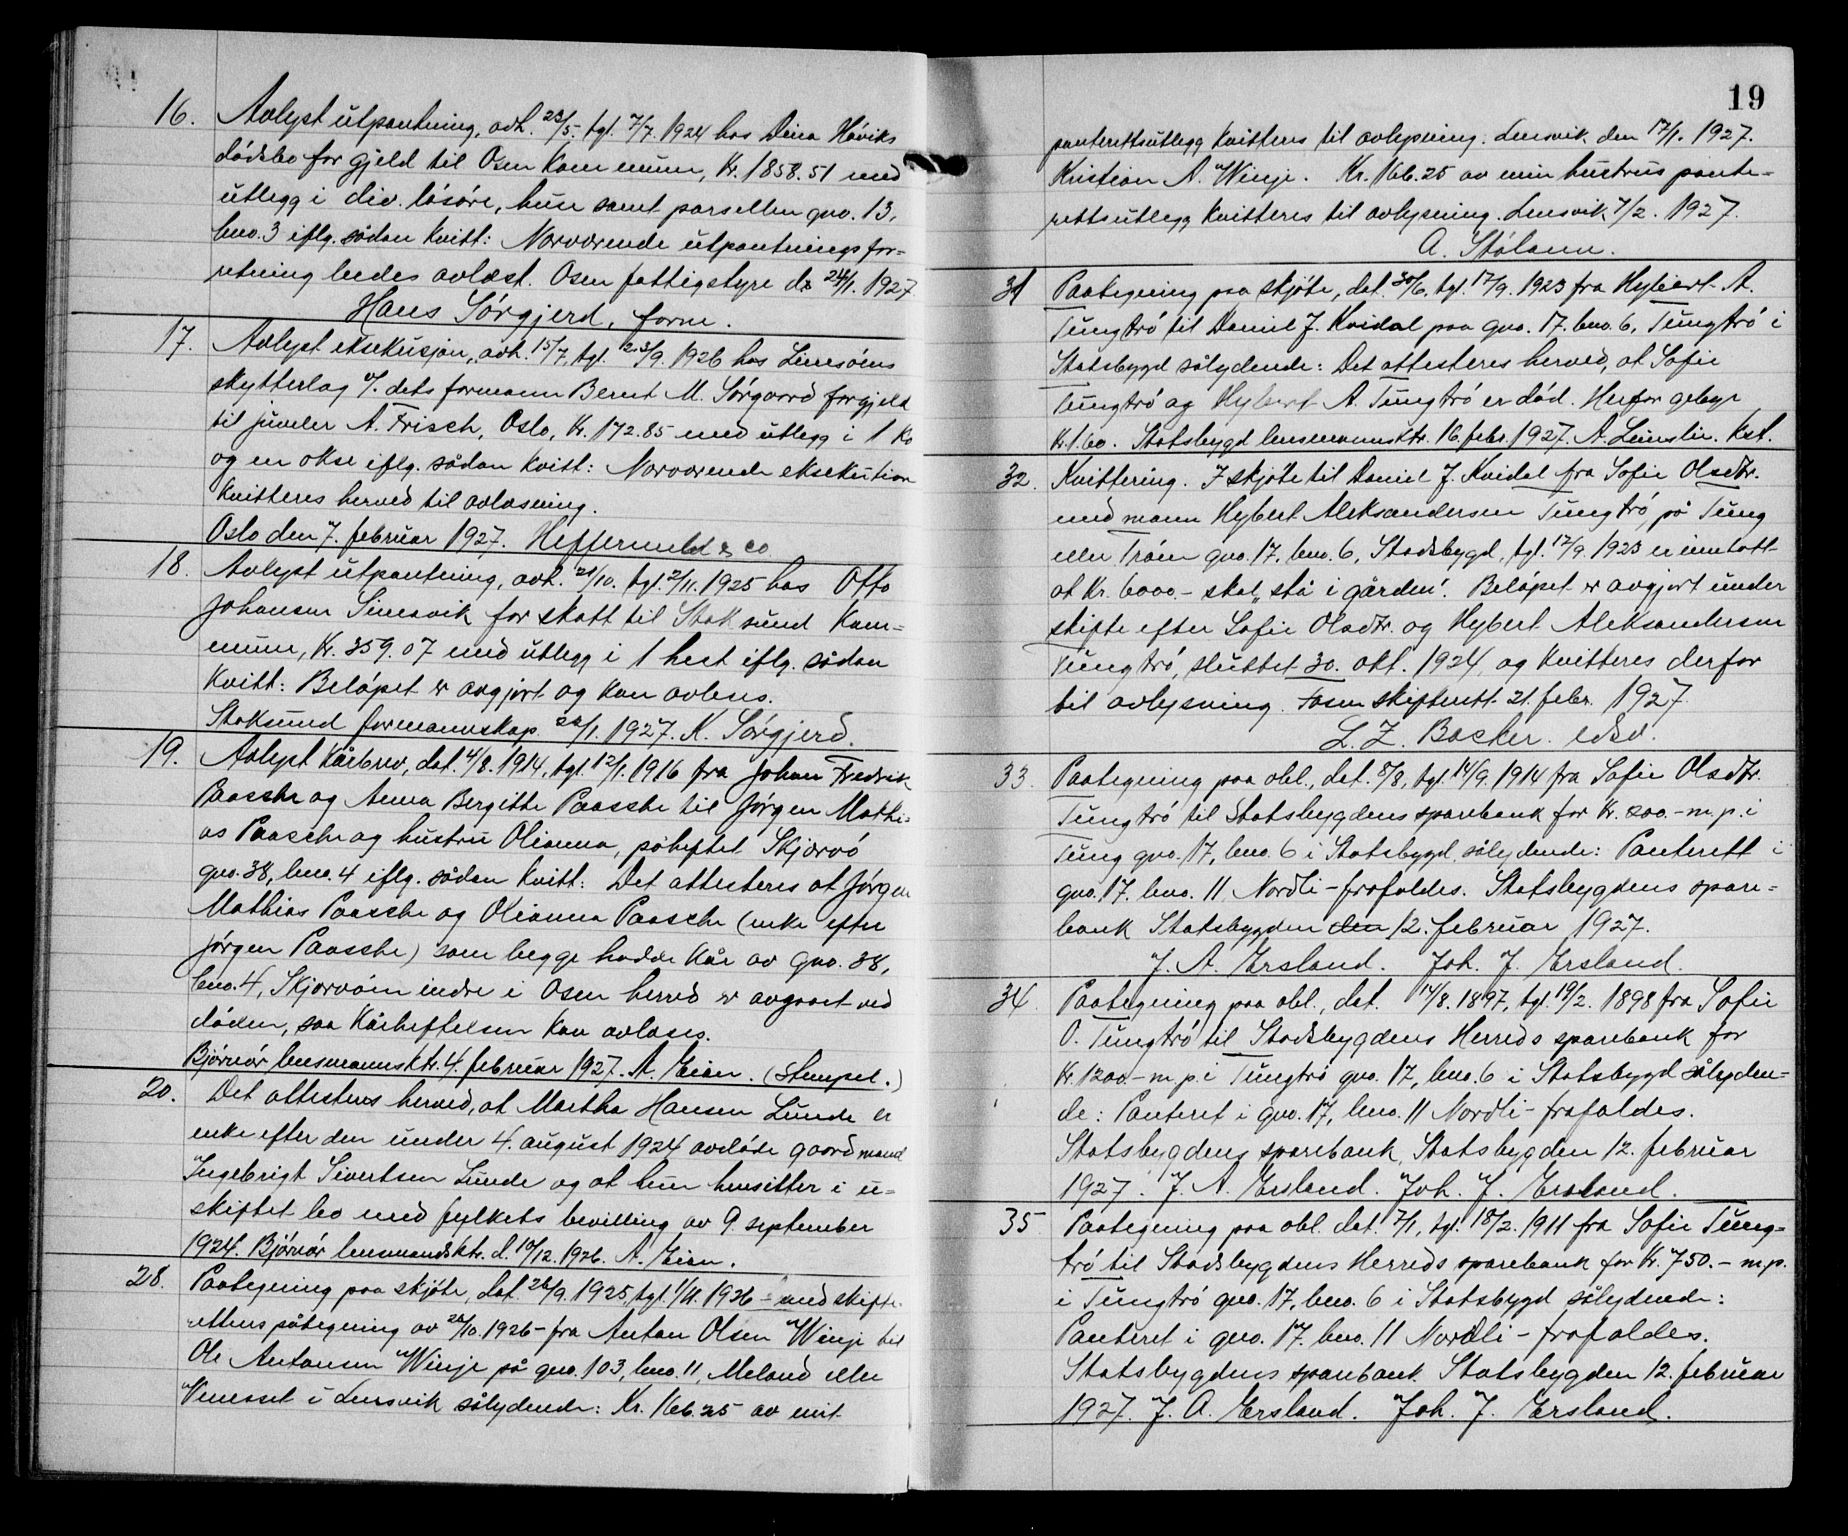 16. Avlyst utpantning, avh. 23/5. tgl. 7/7. 1924 hos Dina Håviks
dödsbo for gjeld til Osen Kommune, Kr. 1858.51 med
utlegg i div. lösöre, huse samt parsellen gno. 13,
bno. 3 iflg. sådan Kvitt: Nærværende utpantningsfor-
retning bedes avlæst. Osen fattigstyre d. 24/1. 1927
Hans Sörgjerd, form.
17. Avlyst eksekusjon, avh. 15/7, tgl. 23/9. 1926 hos Linesöens
skytterlag v/. dets formann Bernt M. Sörgaard for gjeld
til juveler A. Frisch, Oslo, Kr. 172.85 med utlegg i 1 Ko
og en okse iflg. sådan Kvitt: Nærværende eksekution
Kvitteres herved til avlæsning.
Oslo den 7. februar 1927. & Co
18. Avlyst utpantning, avh. 21/10. tgl. 2/11. 1925 hos Otto
Johansen Sinesvik for skatt til Stoksund Kom-
mune, Kr. 359.07 med utlegg i 1 hest iflg. sådan
Kvitt: Belöpet er avgjort og kan avleses.
Stoksund formannskap 22/1. 1927. K. Sörgjerd.
19. Avlyst Kårbrev, dat. 4/8. 1914, tgl. 12/1. 1916 fra Johan Fredrik
Paasche og Anna Bergitte Paasche til Jörgen Mathi-
as Paasche og hustru Olianna, påheftet Skjærvö
gno. 38, bno. 4 iflg. sådan Kvitt: Det attesteres at Jörgen
Mathias Paasche og Olianna Paasche (enke efter
Jörgen Paasche) som begge hadde Kår av gno. 38,
bno. 4, Skjærvöin indre i Osen herred er avgaaet ved
döden, saa Kårheftelsen Kan avlæses.
Björnör lensmannsktr. 4. februar 1927. A. Eian. (Stempel.)
20. Det attesteres herved, at Martha Hansen Lunde er
enke efter den under 4. august 1924 avdöde gaardmand
Ingebrigt Sivertsen Lunde og at hun hensitter i u-
skiftet bo med fylkets bevilling av 9. september
1924. Björnör lensmandsktr. d. 10/12. 1926. A. Eian.
28. Paategning paa skjöte, dat. 26/9. 1925, tgl. 1/11. 1926 - med skifte-
rettens påtegning av 26/10. 1926 - fra Anton Olsen Winje til
Ole Antonsen Winje på gno. 103, bno. 11, Meland eller
Vineset i Lensvik sålydende: Kr. 166.25 av mit
19
panterettsutlegg Kvitteres til avlysning. Lensvik den 17/1. 1927.
Kristian A. Winje. Kr. 166.25 av min hustrus pante-
rettsutlegg Kvitteres til avlysning. Lensvik 7/2. 1927.
A. Stölann.
31 Paategning paa skjöte, dat. 30/6. tgl. 17/9. 1923 fra Hybert A.
Tungtrö til Daniel J. Kvidal paa gno. 17. bno. 6, Tungtrö i
Statsbygd sålydende: Det attesteres herved, at Sofie
Tungtrö og Hybert A. Tungtrö er död. Herfor gebyr
Kr. 1.60. Statsbygd lensmannsktr. 16. febr. 1927. A. Leinslie. Kst.
32. Kvittering. I skjöte til Daniel J. Kvidal fra Sofie Olsdtr.
med mann Hybert Aleksandersen Tungtrö, på Tung
eller Tröen gno. 17, bno. 6, Stadsbygd, tgl. 17/9. 1923 er inntatt
at Kr. 6000.- skal „stå i gården". Belöpet er avgjort under
skifte efter Sofie Olsdtr. og Hybert Aleksandersen
Tungtrö, sluttet 30. okt. 1924, og Kvitteres derfor
til avlysning. Fosen skifterett 21. febr. 1927.
L. Z. Backer. edsv.
33. Paategning paa obl., dat. 8/8, tgl. 14/9. 1914 fra Sofie Olsdtr.
Tungtrö til Statsbygdens sparebank for Kr. 200.- m.p. i
Tung gno. 17, bno. 6 i Statsbygd, sålydende: Panterett i
gno. 17. bno. 11 Nordli - frafaldes. Statsbygdens spare-
bank Statsbygden den 12. februar 1927.
J. A. Ersland. Joh. J. Ersland.
34. Paategning paa obl., dat. 14/8. 1897, tgl. 19/2. 1898 fra Sofie
O. Tungtrö til Stadsbygdens Herreds sparebank for
Kr. 1200.- m.p. i Tungtrö gno. 17, bno. 6 i Statsbygd sålyden-
de: Panteret i gno. 17, bno. 11 Nordli - frafaldes.
Statsbygdens sparebank, Statsbygden 12. februar
1927. J. A. Ersland. Joh. J. Ersland.
35 Paategning paa obl. dat. 7/1, tgl. 18/2. 1911 fra Sofie Tung-
trö til Stadsbygdens Herreds sparebank for Kr. 750.- m.p.
i Tungtrö gno. 17, bno. 6 i Statsbygd sålydende:
Panteret i gno. 17. bno. 11 Nordli - frafaldes.
Statsbygdens sparebank. Statsbygden 12. februar
1927. J. A. Ersland. Joh. J. Ersland.